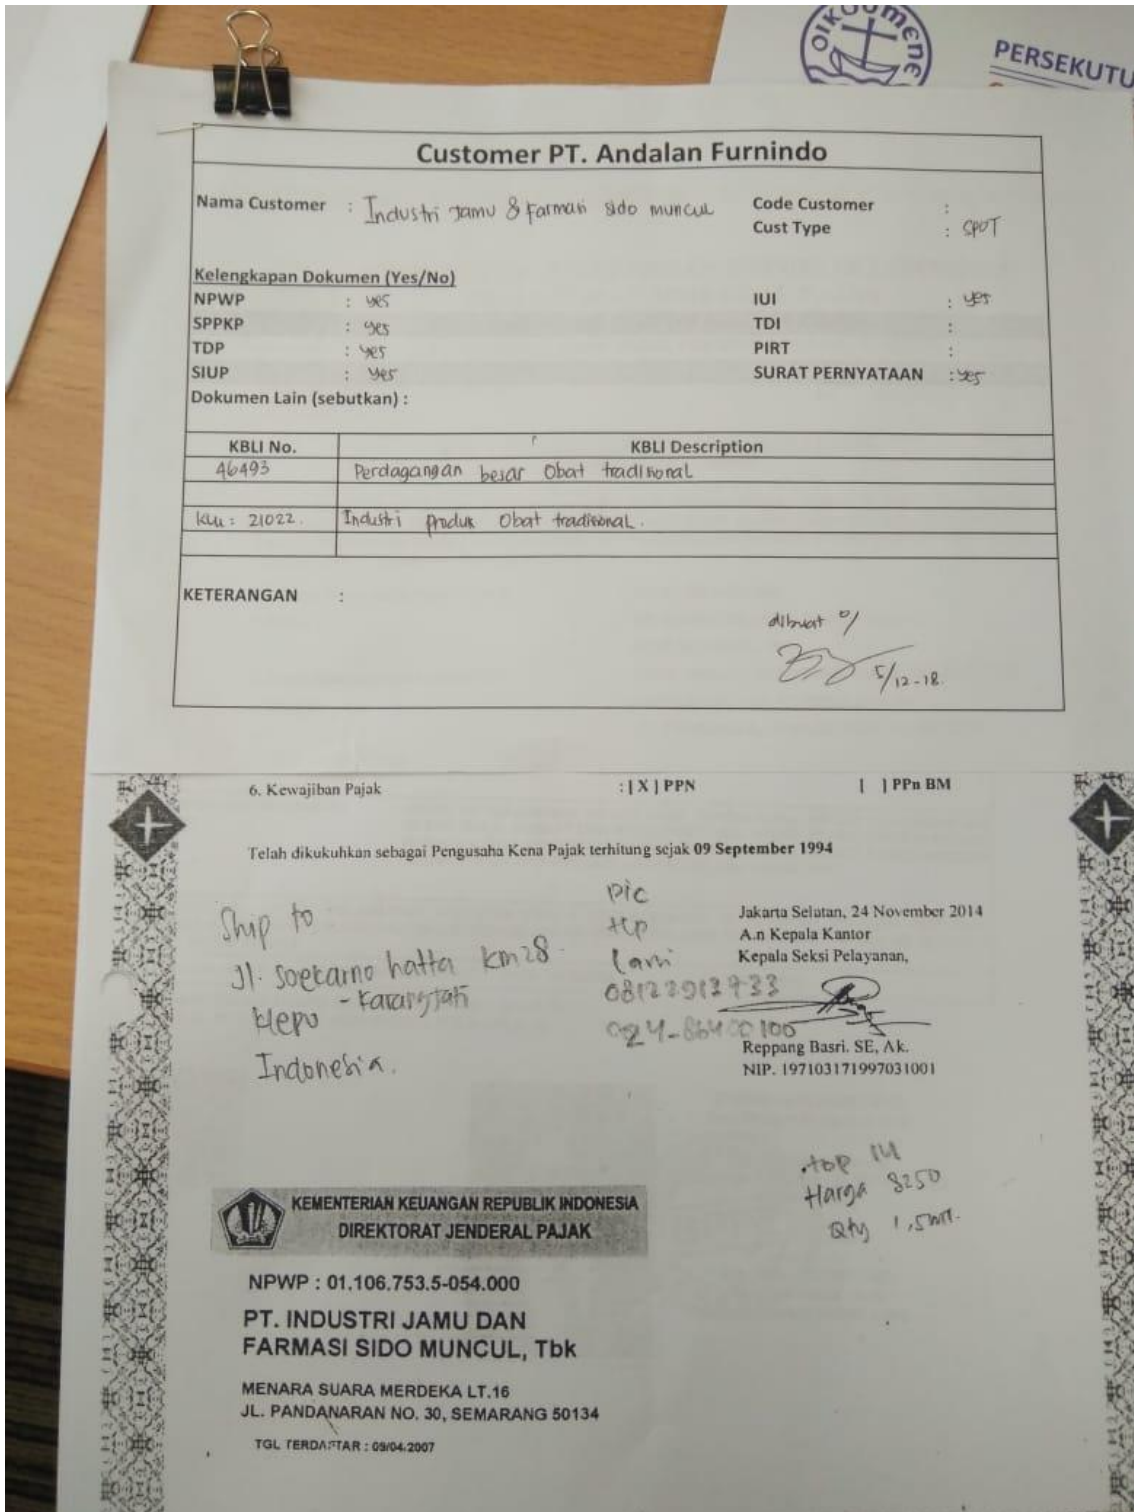 OIKOUMENE
PERSEKUTU
Customer PT. Andalan Furnindo
Nama Customer : Industri Jamu & Farmasi sido muncul
Code Customer :
Cust Type : SPOT
Kelengkapan Dokumen (Yes/No)
NPWP : yes
IUI : yes
SPPKP : yes
TDI :
TDP : yes
PIRT :
SIUP : yes
SURAT PERNYATAAN : yes
Dokumen Lain (sebutkan) :
KBLI No. KBLI Description
46493 Perdagangan besar Obat tradisional
KLU : 21022. Industri Produk Obat tradisional.
KETERANGAN :
dibuat o/
5/12-18.
6. Kewajiban Pajak : [ X ] PPN [ ] PPn BM
Telah dikukuhkan sebagai Pengusaha Kena Pajak terhitung sejak 09 September 1994
Ship to
Jl. Soekarno hatta km 28
- Karangjati
Klepu
Indonesia.
pic
tlp
Jakarta Selatan, 24 November 2014
A.n Kepala Kantor
Kepala Seksi Pelayanan,
Reppang Basri. SE, Ak.
NIP. 197103171997031001
top 14
Harga 8250
Qty 1,5 MT.
KEMENTERIAN KEUANGAN REPUBLIK INDONESIA
DIREKTORAT JENDERAL PAJAK
NPWP : 01.106.753.5-054.000
PT. INDUSTRI JAMU DAN
FARMASI SIDO MUNCUL, Tbk
MENARA SUARA MERDEKA LT.16
JL. PANDANARAN NO. 30, SEMARANG 50134
TGL TERDAFTAR : 09/04/2007